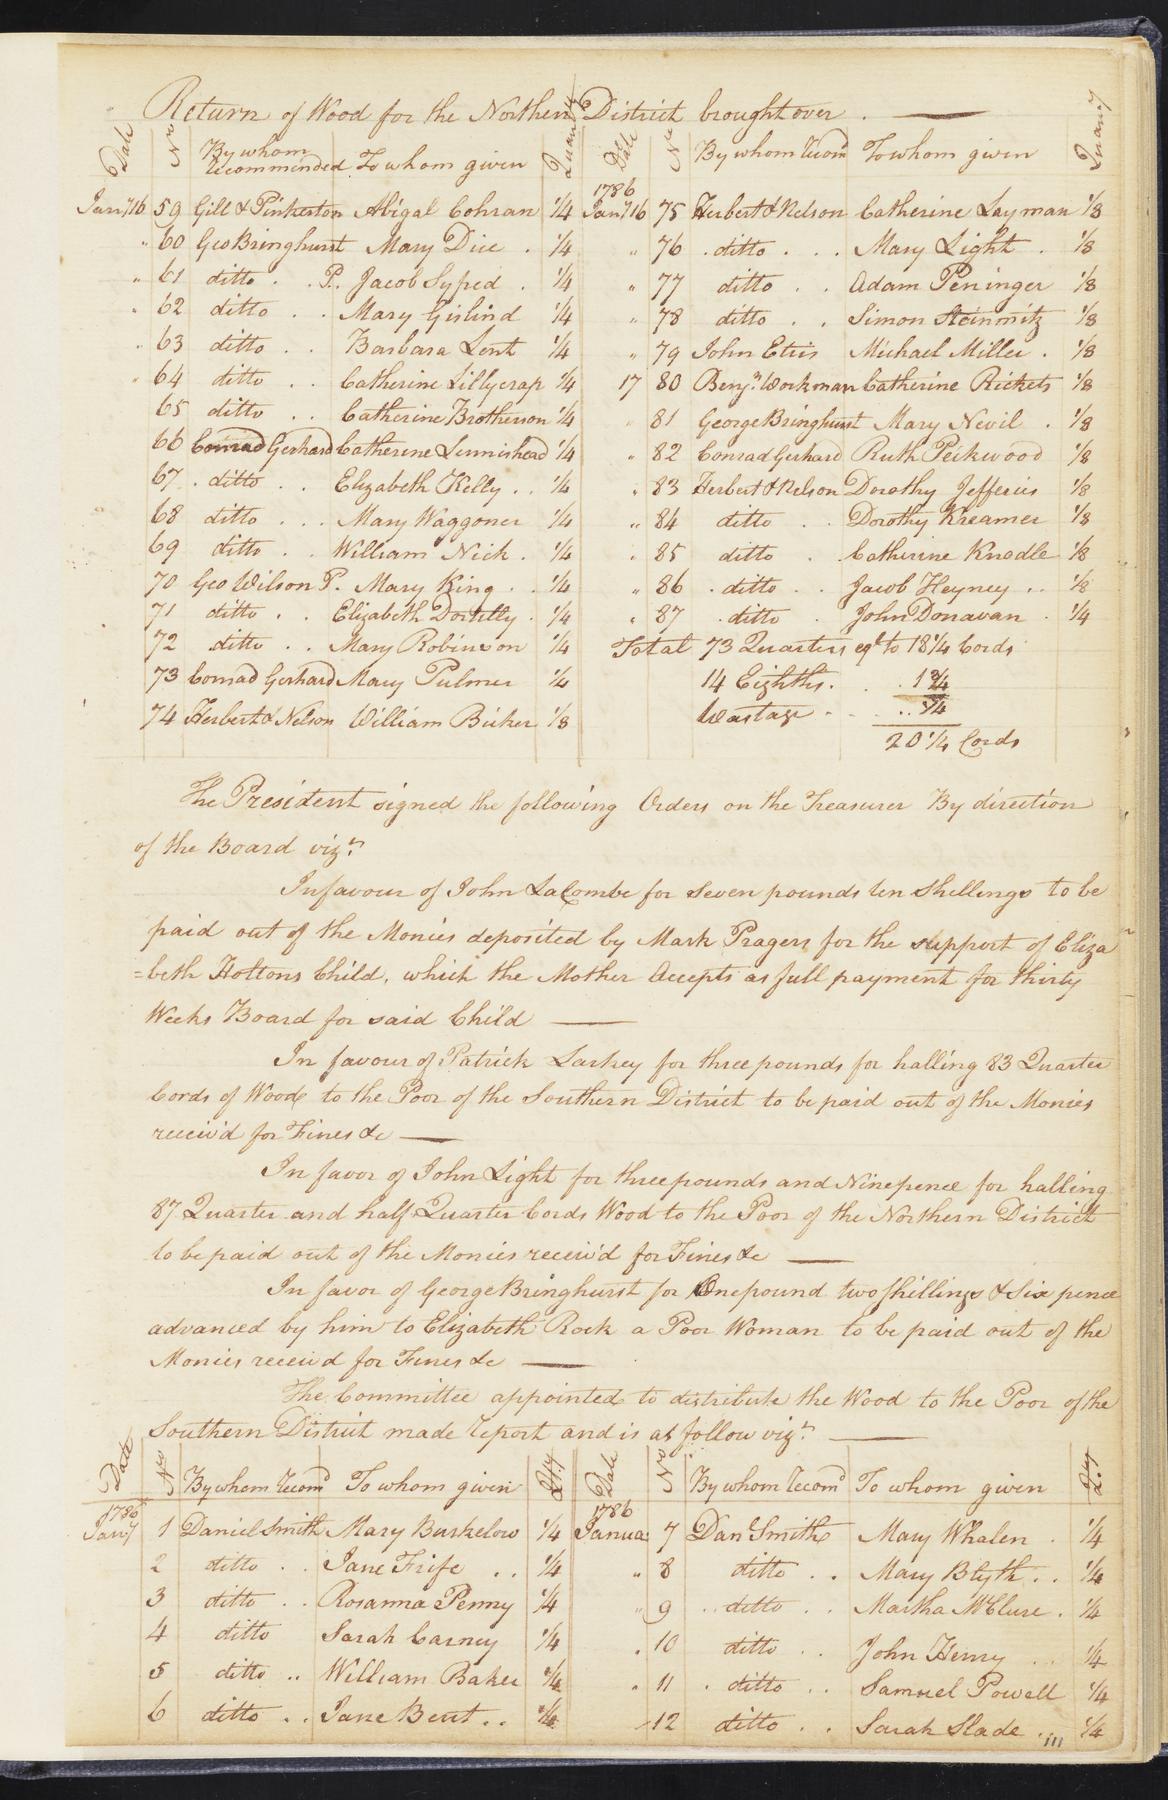 Return of Wood for the Northern District brought over.
Date No By whom recommended To whom given Quanty
Jany 16 59 Gill & Pinkerton Abigal Cohran 1/4
" 60 Geo Bringhurst Mary Dice 1/4
" 61 ditto P. Jacob Syfred 1/4
" 62 ditto Mary Gislind 1/4
" 63 ditto Barbara Lent 1/4
" 64 ditto Catherine Lillycrap 1/4
65 ditto Catherine Brotherson 1/4
66 Conrad Gerhard Catherine Linnishead 1/4
67 ditto Elizabeth Kelly 1/4
68 ditto Mary Waggoner 1/4
69 ditto William Nick 1/4
70 Geo Wilson P. Mary King 1/4
71 ditto Elizabeth Dorully 1/4
72 ditto Mary Robinson 1/4
73 Conrad Gerhard Mary Pulmer 1/4
74 Herbert & Nelson William Bicker 1/8
Date No By whom recomd To whom given Quanty
1786
Jany 16 75 Herbert & Nelson Catherine Layman 1/8
" 76 ditto Mary Light 1/8
" 77 ditto Adam Peninger 1/8
" 78 ditto Simon Steinmitz 1/8
" 79 John Etris Michael Miller 1/8
17 80 Benjn Workman Catherine Rickets 1/8
" 81 George Bringhurst Mary Nevil 1/8
" 82 Conrad Gerhard Ruth Peikwood 1/8
" 83 Herbert & Nelson Dorothy Jefferies 1/8
" 84 ditto Dorothy Kreamer 1/8
" 85 ditto Catherine Knodle 1/8
" 86 ditto Jacob Heyney 1/8
" 87 ditto John Donavan 1/4
Total 73 Quarters eql to 18 1/4 Cords
14 Eighths. 1 3/4
Wastage 1/4
20 1/4 Cords
The President signed the following Orders on the Treasurer By direction
of the Board vizt
In favour of John LaCombe for Seven pounds ten Shillings to be
paid out of the Monies deposited by Mark Pragers for the support of Eliza
=beth Holtons Child, which the Mother Accepts as full payment for thirty
Weeks Board for said Child
In favour of Patrick Larkey for three pounds for halling 83 Quarter
Cords of Wood to the Poor of the Southern District to be paid out of the Monies
receiv'd for Fines &c
In favor of John Light for three pounds and Ninepence for halling
87 Quarter and half Quarter Cords Wood to the Poor of the Northern District
to be paid out of the Monies receiv'd for Fines &c
In favor of George Bringhurst for One pound two shillings & Six pence
advanced by him to Elizabeth Rock a Poor Woman to be paid out of the
Monies receiv'd for Fines &c
The Committee appointed to distribute the Wood to the Poor of the
Southern District made report and is as follow vizt
Date No By whom recomd To whom given Qty
1786
Jany 1 Daniel Smith Mary Buskelow 1/4
2 ditto Jane Frife 1/4
3 ditto Rosanna Penny 1/4
4 ditto Sarah Carney 1/4
5 ditto William Baker 1/4
6 ditto Jane Bent 1/4
Date No By whom recomd To whom given Qty
1786
Janua: 7 Danl Smith Mary Whalen 1/4
" 8 ditto Mary Blyth 1/4
" 9 ditto Martha McClure 1/4
" 10 ditto John Henry 1/4
" 11 ditto Samuel Powell 1/4
12 ditto Sarah Slade 1/4
111